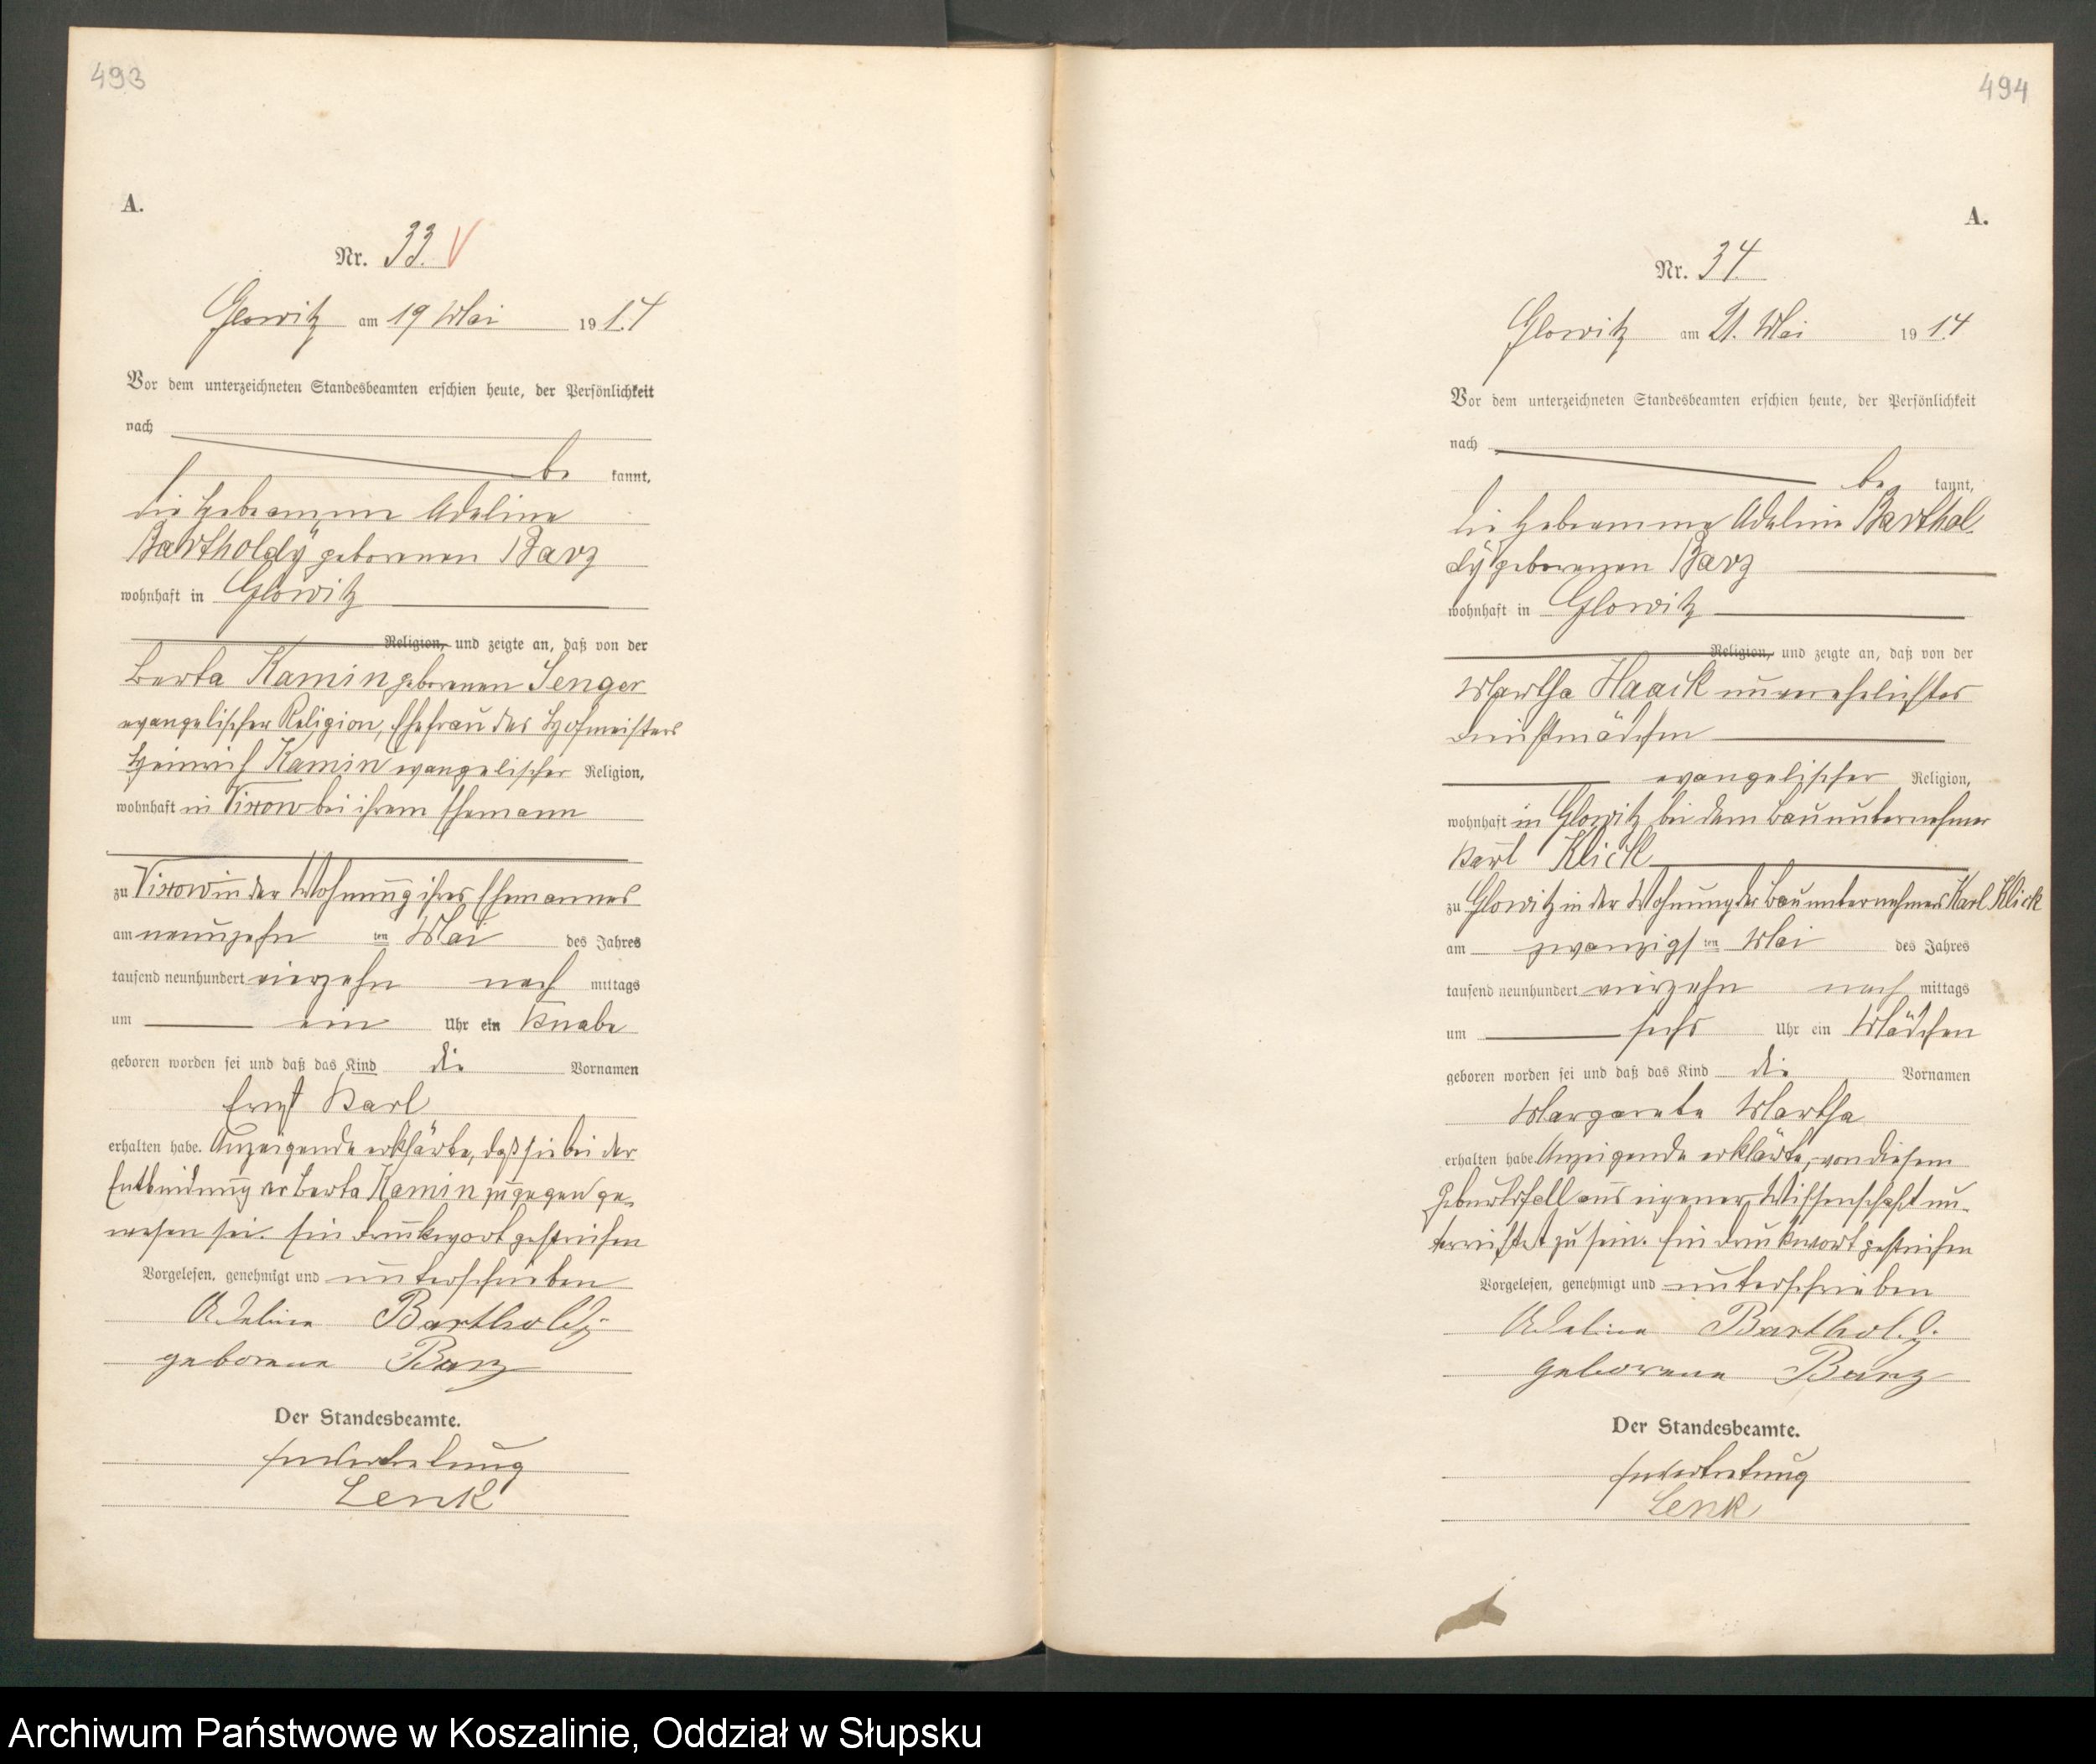 493
A.
Nr. 33. V
Glowitz am 19 Mai 1914
Vor dem unterzeichneten Standesbeamten erschien heute, der Persönlichkeit
nach
be kannt,
die Hebeamme Adeline
Bartholdÿ geborenen Barz
wohnhaft in Glowitz
Religion, und zeigte an, daß von der
Berta Kamin geborenen Senger
evangelischer Religion, Ehefrau des Hofmeisters
Heinrich Kamin evangelischer Religion,
wohnhaft in Vixow bei ihrem Ehemann
zu Vixow in der Wohnung ihres Ehemannes
am neunzehn ten Mai des Jahres
tausend neunhundert vierzehn nach mittags
um ein Uhr ein Knabe
geboren worden sei und daß das Kind die Vornamen
Ernst Karl
erhalten habe. Anzeigende erklärte, daß sie bei der
Entbindung der Berta Kamin zugegen ge-
wesen sei. Ein Druckwort gestrichen
Vorgelesen, genehmigt und unterschrieben
Adeline Bartholdy
geborene Barz
Der Standesbeamte.
In Vertretung
Lenk
494
A.
Nr. 34
Glowitz am 21. Mai 1914
Vor dem unterzeichneten Standesbeamten erschien heute, der Persönlichkeit
nach
be kannt,
die Hebeamme Adeline Barthol-
dÿ geborenen Barz
wohnhaft in Glowitz
Religion, und zeigte an, daß von der
Martha Haack unverehelichtes
Dienstmädchen
evangelischer Religion,
wohnhaft in Glowitz bei dem Bauunternehmer
Karl Klick
zu Glowitz in der Wohnung des Bauunternehmers Karl Klick
am zwanzigs ten Mai des Jahres
tausend neunhundert vierzehn nach mittags
um sechs Uhr ein Mädchen
geboren worden sei und daß das Kind die Vornamen
Margarete Martha
erhalten habe. Anzeigende erklärte, von diesem
Geburtsfall aus eigener Wissenschaft un-
terrichtet zu sein. Ein Druckwort gestrichen
Vorgelesen, genehmigt und unterschrieben
Adeline Bartholdy
geborene Barz
Der Standesbeamte.
In Vertretung
Lenk
Archiwum Państwowe w Koszalinie, Oddział w Słupsku